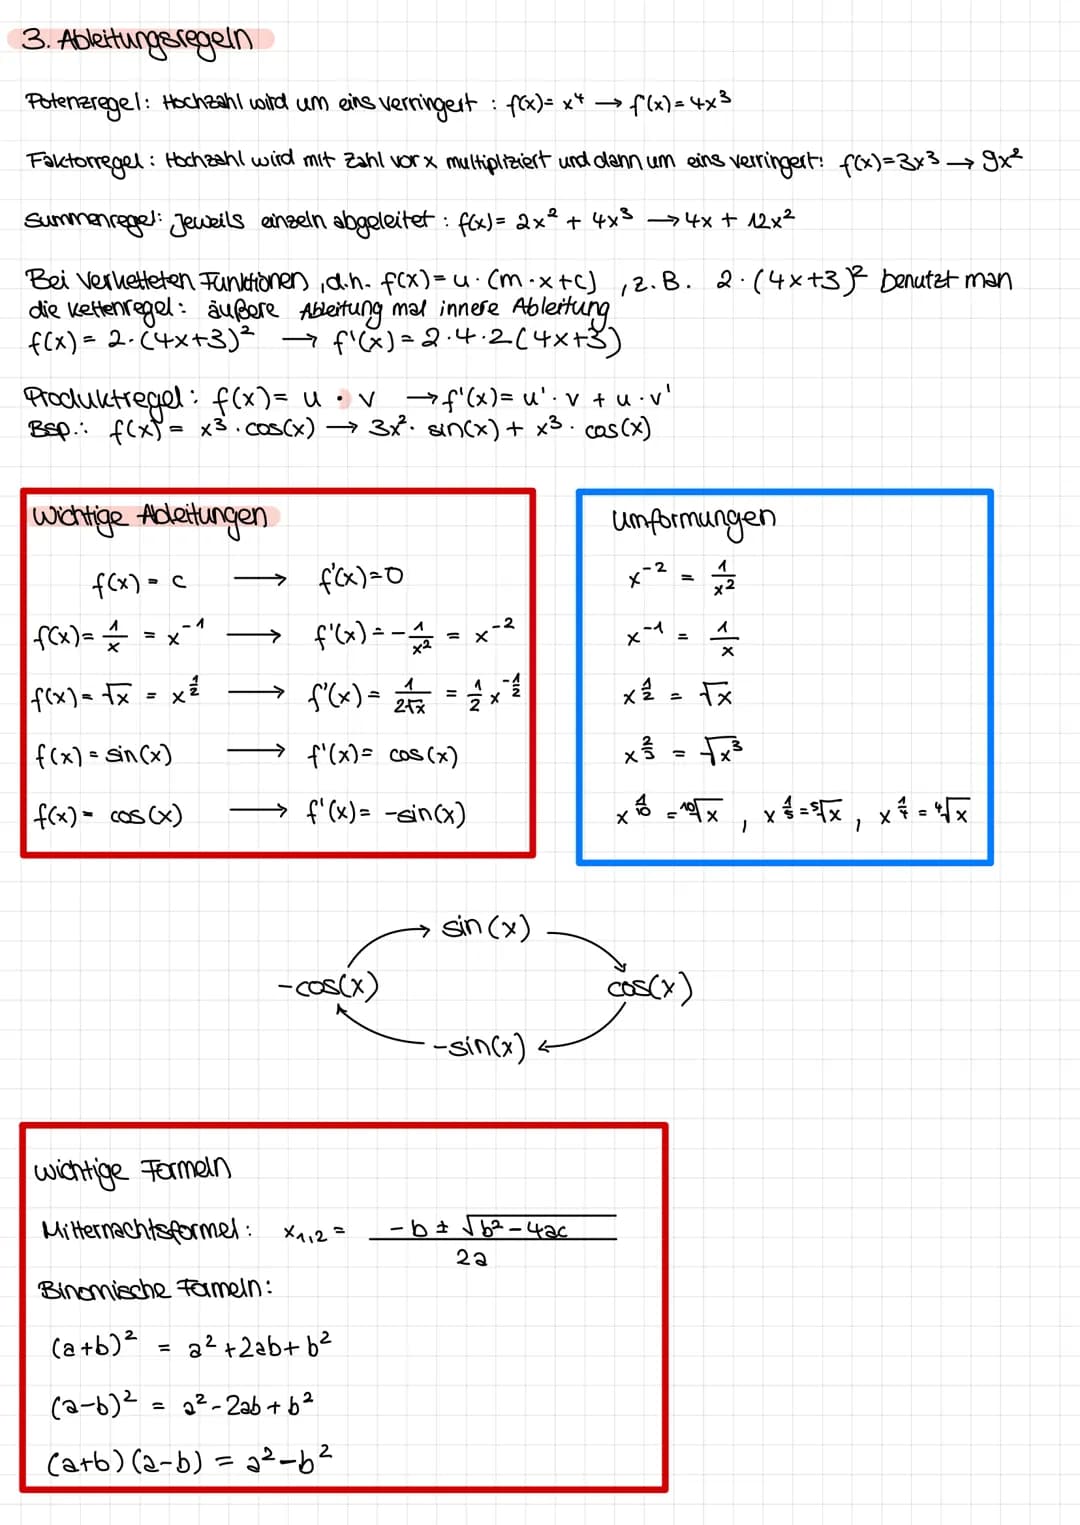 3. Ableitungsregeln
Potenzregel: Hochzahl wird um eins verringert : f(x)= x⁴ → f'(x)= 4x³
Faktorregel : Hochzahl wird mit Zahl vor x multipliziert und dann um eins verringert: f(x)=3x³ → 9x²
Summenregel: Jeweils einzeln abgeleitet : f(x)= 2x² + 4x³ → 4x + 12x²
Bei verketteten Funktionen, d.h. f(x)= u · (m · x+c) , z.B. 2 · (4x+3)² benutzt man
die Kettenregel: äußere Ableitung mal innere Ableitung
f(x) = 2·(4x+3)² → f'(x)=2·4·2(4x+3)
Produktregel: f(x)= u · v → f'(x)= u' · v + u · v'
Bsp.: f(x) = x³ · cos(x) → 3x² · sin(x) + x³ · cos(x)
Wichtige Ableitungen
f(x) = c → f'(x)=0
f(x)= 1/x = x⁻¹ → f'(x) = - 1/x² = x⁻²
f(x)= √x = x^(1/2) → f'(x) = 1/(2√x) = 1/2 x^(-1/2)
f(x) = sin(x) → f'(x)= cos(x)
f(x)= cos(x) → f'(x)= -sin(x)
Umformungen
x⁻² = 1/x²
x⁻¹ = 1/x
x^(1/2) = √x
x^(2/3) = √x³
x^(1/10) = ¹⁰√x , x^(1/5) = ⁵√x , x^(1/4) = ⁴√x
sin(x)
-cos(x) cos(x)
-sin(x)
wichtige Formeln
Mitternachtsformel : x₁,₂ = (-b ± √(b² - 4ac)) / 2a
Binomische Formeln:
(a+b)² = a² + 2ab + b²
(a-b)² = a² - 2ab + b²
(a+b)(a-b) = a² - b²